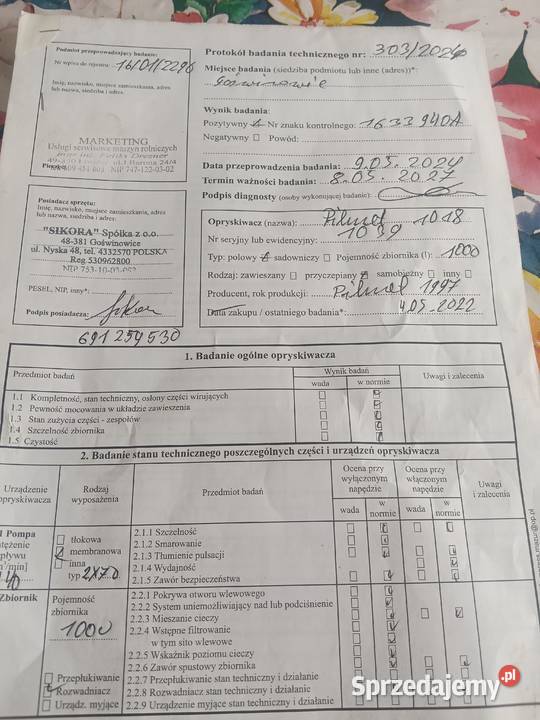 Podmiot przeprowadzający badanie:
Nr wpisu do rejestru: 16/01/2296
Imię, nazwisko, miejsce zamieszkania, adres
lub nazwa, siedziba i adres:
MARKETING
Usługi serwisowe maszyn rolniczych
NIP 747-122-03-02
Posiadacz sprzętu:
Imię, nazwisko, miejsce zamieszkania, adres
lub nazwa, siedziba i adres:
"SIKORA" Spółka z o.o.
48-381 Goświnowice
ul. Nyska 48, tel. 4332570 POLSKA
Reg 530962800
PESEL, NIP, inny*:
Podpis posiadacza:
691 259 530
Protokół badania technicznego nr: 303/2024
Miejsce badania (siedziba podmiotu lub inne (adres))*:
Wynik badania:
Pozytywny Nr znaku kontrolnego: 1633940A
Negatywny Powód:
Data przeprowadzenia badania: 9.05.2024
Termin ważności badania: 8.05.2027
Podpis diagnosty (osoby wykonującej badanie)
Opryskiwacz (nazwa): Pilmet 1018
Nr seryjny lub ewidencyjny: 1039
Typ: polowy sadowniczy Pojemność zbiornika (l): 1000
Rodzaj: zawieszany przyczepiany samobieżny inny
Producent, rok produkcji: Pilmet 1997
Data zakupu / ostatniego badania*: 4.05.2022
1. Badanie ogólne opryskiwacza
Przedmiot badań
Wynik badań
wada w normie
Uwagi i zalecenia
1.1 Kompletność, stan techniczny, osłony części wirujących
1.2 Pewność mocowania w układzie zawieszenia
1.3 Stan zużycia części - zespołów
1.4 Szczelność zbiornika
1.5 Czystość
2. Badanie stanu technicznego poszczególnych części i urządzeń opryskiwacza
Urządzenie opryskiwacza
Rodzaj wyposażenia
Przedmiot badań
Ocena przy wyłączonym napędzie
Ocena przy włączonym napędzie
Uwagi i zalecenia
wada w normie wada w normie
Pompa
tłokowa
membranowa
inna
typ 2x70
40
2.1.1 Szczelność
2.1.2 Smarowanie
2.1.3 Tłumienie pulsacji
2.1.4 Wydajność
2.1.5 Zawór bezpieczeństwa
Zbiornik
Pojemność zbiornika
1000
Przepłukiwanie
Rozwadniacz
Urządz. myjące
2.2.1 Pokrywa otworu wlewowego
2.2.2 System uniemożliwiający nad lub podciśnienie
2.2.3 Mieszanie cieczy
2.2.4 Wstępne filtrowanie
w tym sito wlewowe
2.2.5 Wskaźnik poziomu cieczy
2.2.6 Zawór spustowy zbiornika
2.2.7 Przepłukiwanie stan techniczny i działanie
2.2.8 Rozwadniacz stan techniczny i działanie
2.2.9 Urządzenie myjące stan techniczny i działanie
Sprzedajemy.pl